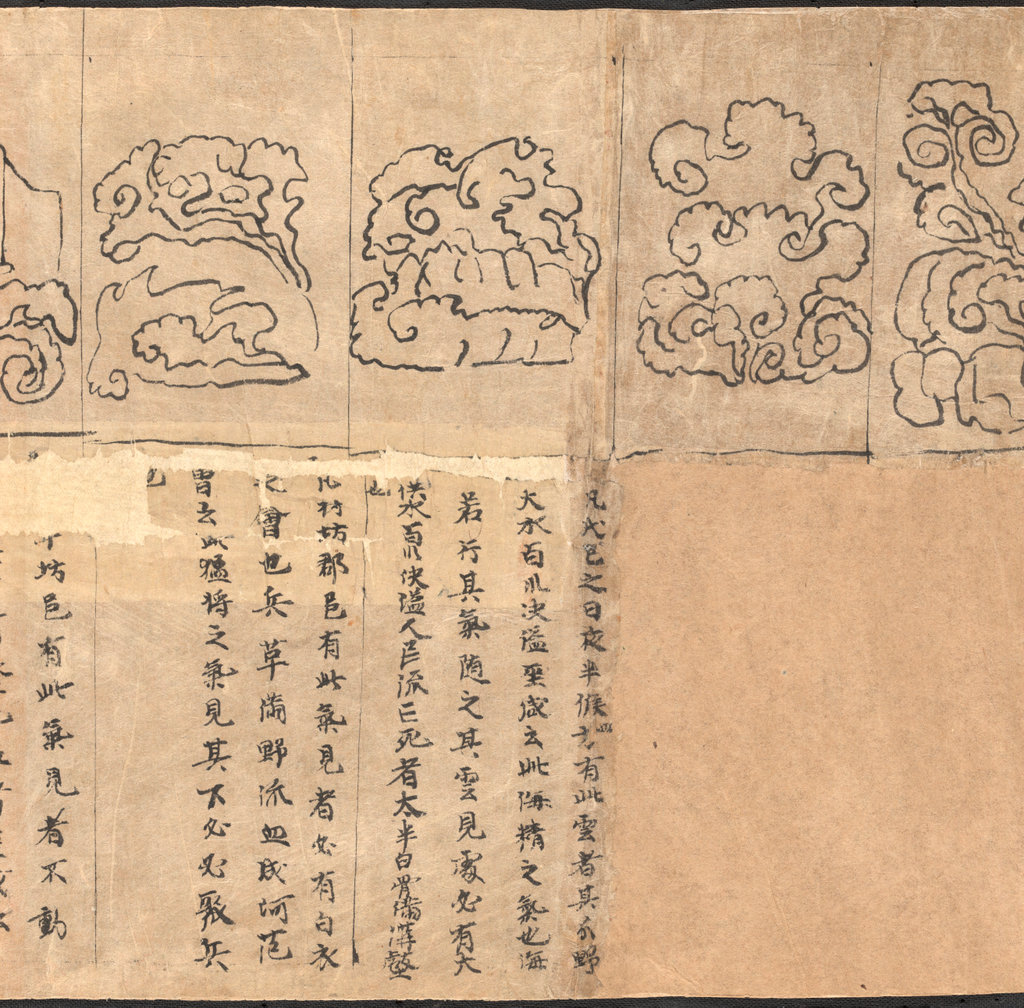 凡戊己之日夜半候四方有此雲者其分野
大水百川決溢至盛云此海精之氣也海
若行其氣隨之其雲見處必有大
洪水百川决溢人民流亡死者太半白骨滿溝壑
也
凡村坊郡邑有此氣見者必有白衣
之會也兵草滿野流血成河范
曾云此猛將之氣見其下必必聚兵
也
坊邑有此氣見者不動